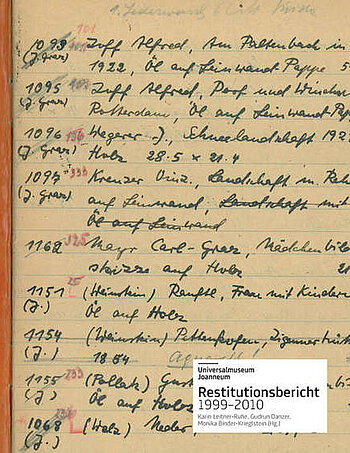 101
1093 Zuff Alfred, Am Paltenbach in
(J. Graz) 1922, Öl auf Leinwand Pappe 5
1095 Zuff Alfred, Dorf und
(J. Graz) Rotterdam, Öl auf Leinwand Pap
1096 136 Wegerer J., Schneelandschaft 192
(J. Graz) Holz 28.5 × 21.4
1097 333 Kreuzer Vinz., Landschaft in Rah
(J. Graz) auf Leinwand, Landschaft mit
Öl auf Leinwand
1168 125 Mayr Carl-Graz, Mädchenbild
skizze auf Holz
1151 25 (Weinstein) Ranftl, Frau mit Kinder
(J.) Öl auf Holz
1154 (Weinstein) Pettenkofen, Zigeuner
(J.) 18.54
1155 233 (Pollak)
(J.) Öl auf
1068 (Walz) Neder,
(J.)
Universalmuseum
Joanneum
Restitutionsbericht
1999–2010
Karin Leitner-Ruhe, Gudrun Danzer,
Monika Binder-Krieglstein (Hg.)